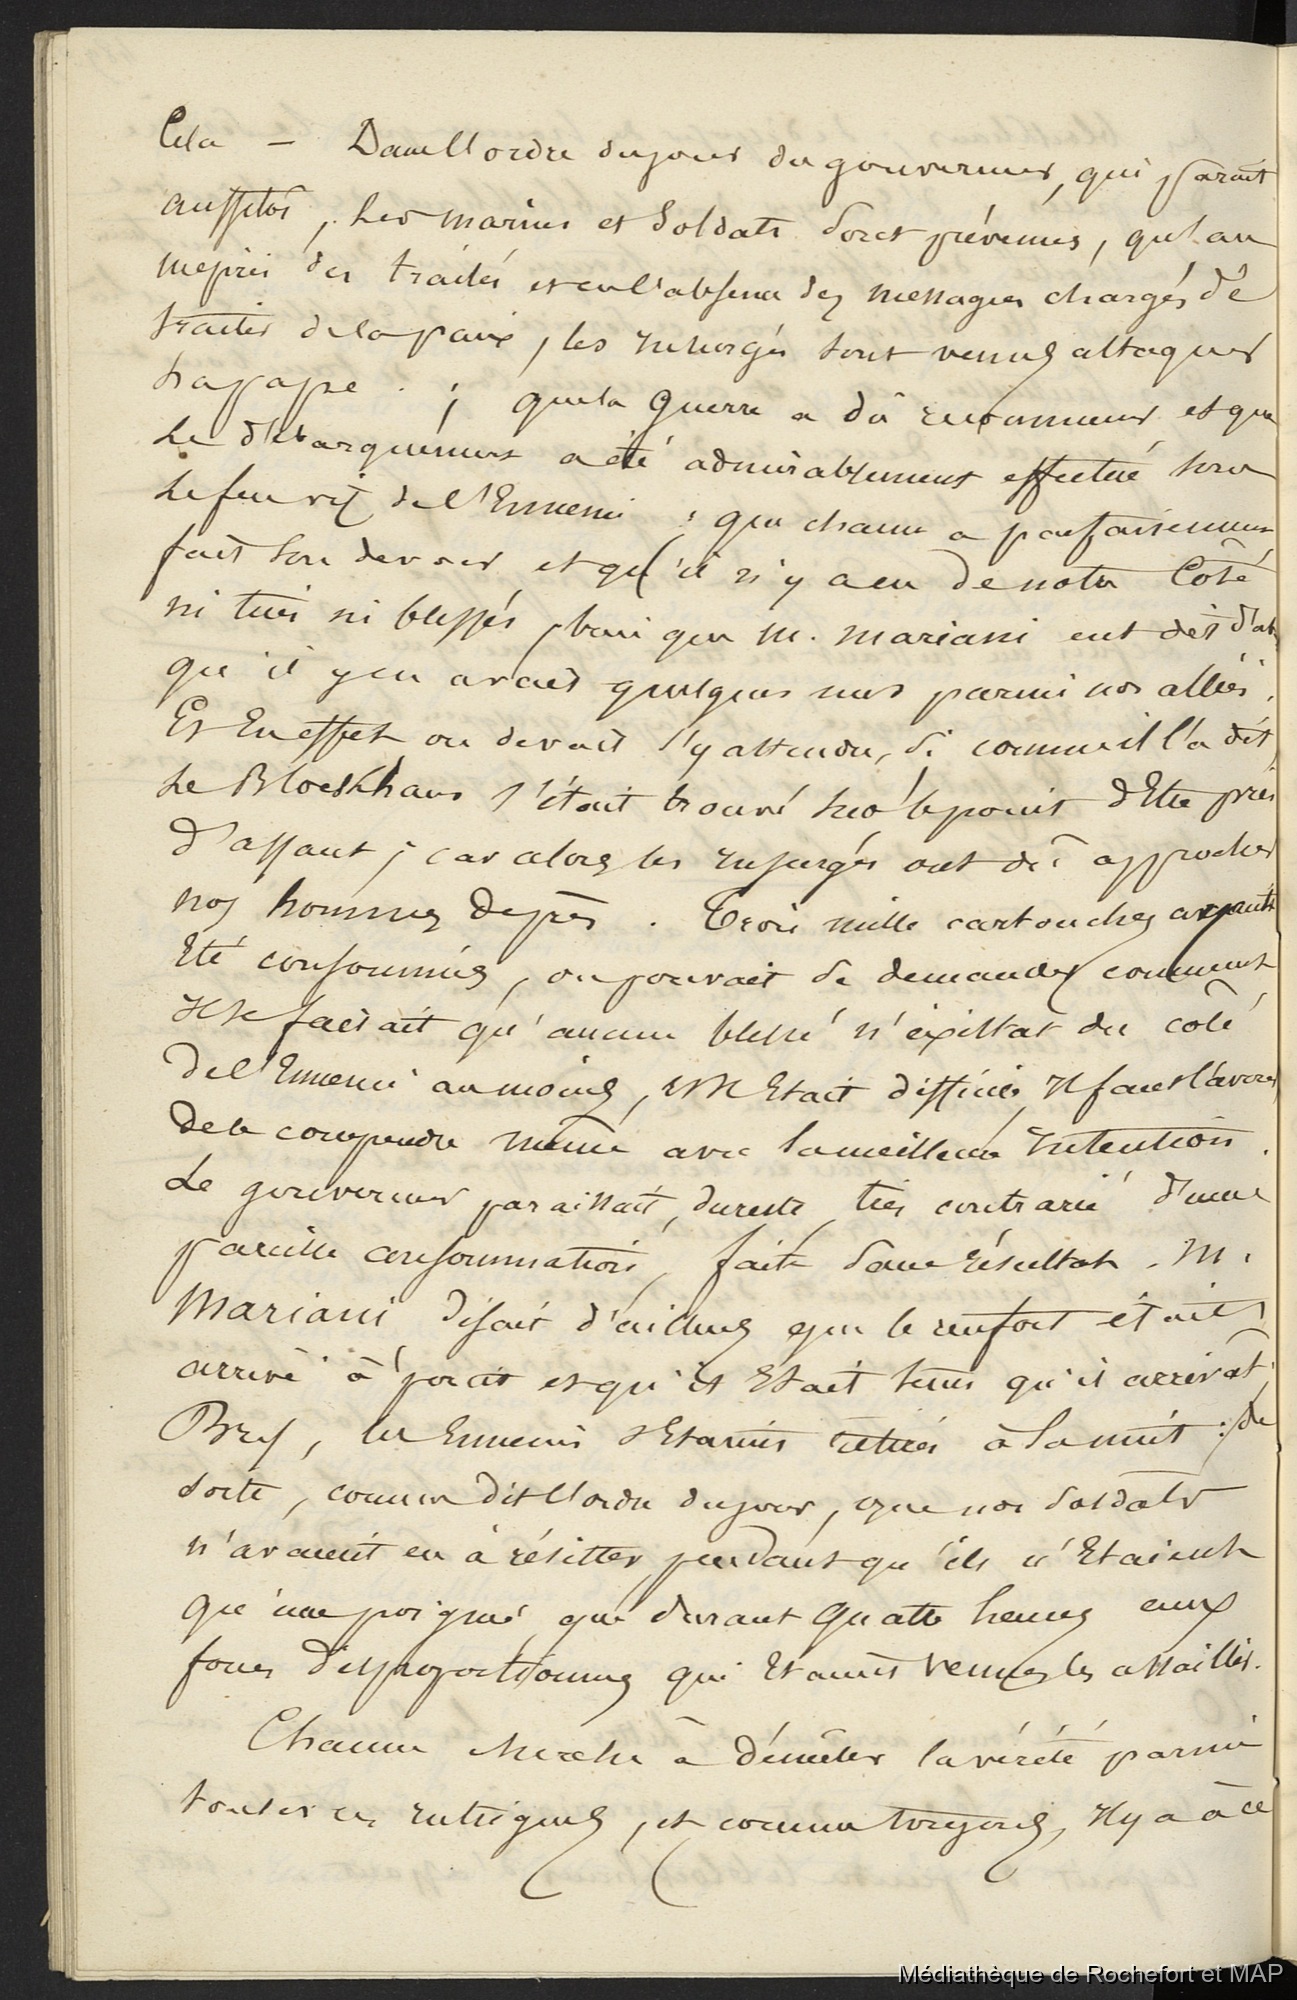 Cela — Dans l'ordre du jour du gouverneur, qui paraît
aussitôt, les marins et soldats sont prévenus, qu'au
mépris des traités et en l'absence des messagers chargés de
traiter de la paix, les insurgés sont venus attaquer
hapape . ; que la guerre a dû recommencer et que
le débarquement a été admirablement effectué sous
le feu vif de l'Ennemi ; que chacun a parfaitement
fait son devoir et qu'il n'y a eu de notre Côté
ni tués ni blessés, bien que M. Mariani eut dit d'ab
qu'il y en avait quelques uns parmi nos alliés.
Et En effet on devait s'y attendre, si comme il l'a dit,
le Blockhaus s'était trouvé sur le point d'Etre pris
d'assaut ; car alors les insurgés ont dû approcher
nos hommes de près . Trois mille cartouches ayant
Eté consommées, on pouvait se demander comment
Il se faisait qu'aucun blessé n'existat du coté
de l'Ennemi au moins, et Il Etait difficile, Il faut l'avouer
de le comprendre même avec la meilleure Intention.
Le gouverneur paraissait, du reste, très contrarié d'une
pareille consommation, faite sans résultat . M.
Mariani disait d'ailleurs que le renfort était
arrivé à point et qu'il Etait tems qu'il arrivât,
Bref, les Ennemis s'Etaient retirés à la nuit : de
sorte, comme dit l'ordre du jour, que nos soldats
n'avaient eu à résister pendant qu'ils n'Etaient
qu'une poignée que durant quatre heures aux
forces disproportionnées qui Etaient venues les assaillir.
Chacun cherche à démêler la vérité parmi
toutes ces intrigues, et comme toujours, Il y a à ce
Médiathèque de Rochefort et MAP